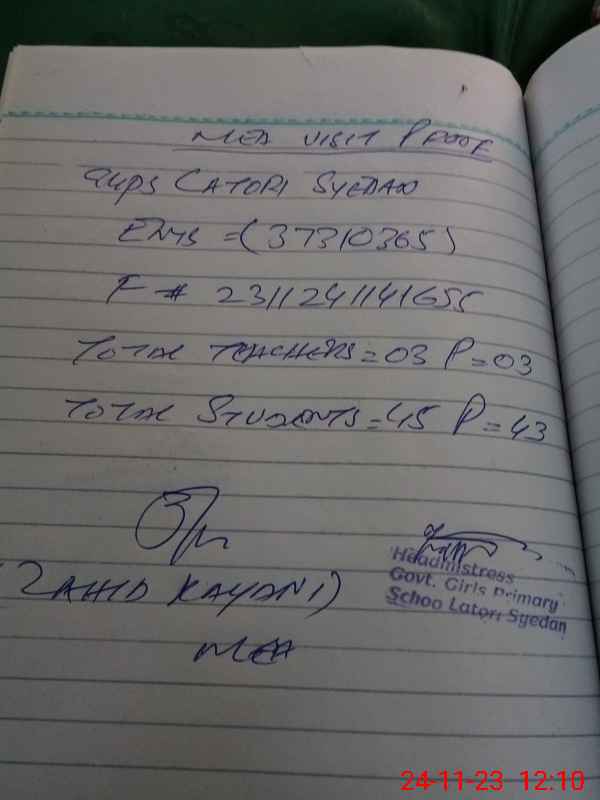 MEA VISIT PROOF
GGPS LATORI SYEDAN
EMIS =(37310365)
F # 2311241141655
TOTAL TEACHERS=03 P=03
TOTAL STUDENTS=45 P=43
(ZAHID KAYANI)
MEA
Headmistress
Govt. Girls Primary
Schoo Latori Syedan
24-11-23 12:10